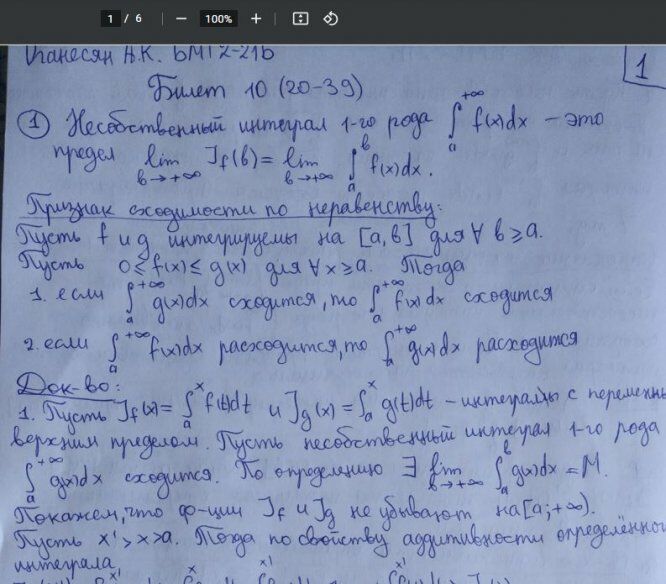 1 / 6 − 100% +
Оганесян А.К. БМТ2-21Б
1
Билет 10 (20-39)
① Несобственный интеграл 1-го рода ∫ₐ^{+∞} f(x)dx – это
предел lim_{b→+∞} J_f(b) = lim_{b→+∞} ∫ₐ^b f(x)dx.
Признак сходимости по неравенству:
Пусть f и g интегрируемы на [a,b] для ∀ b⩾a.
Пусть 0⩽f(x)⩽g(x) для ∀x⩾a. Тогда
1. если ∫ₐ^{+∞} g(x)dx сходится, то ∫ₐ^{+∞} f(x)dx сходится
2. если ∫ₐ^{+∞} f(x)dx расходится, то ∫ₐ^{+∞} g(x)dx расходится
Док-во:
1. Пусть J_f(x)= ∫ₐ^x f(t)dt и J_g(x)= ∫ₐ^x g(t)dt – интегралы с переменны
верхним пределом. Пусть несобственный интеграл 1-го рода
∫ₐ^{+∞} g(x)dx сходится. По определению ∃ lim_{b→+∞} ∫ₐ^b g(x)dx = M.
Покажем, что ф-ции J_f и J_g не убывают на [a;+∞).
Пусть x'>x>a. Тогда по свойству аддитивности определённо
интеграла